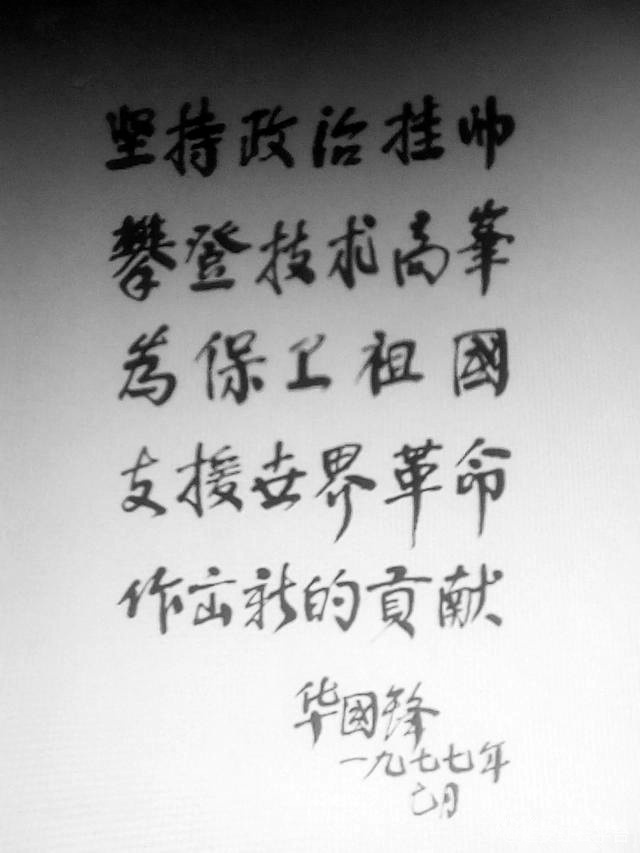 坚持政治挂帅
攀登技术高峯
為保卫祖國
支援世界革命
作出新的貢献
华國锋
一九七七年